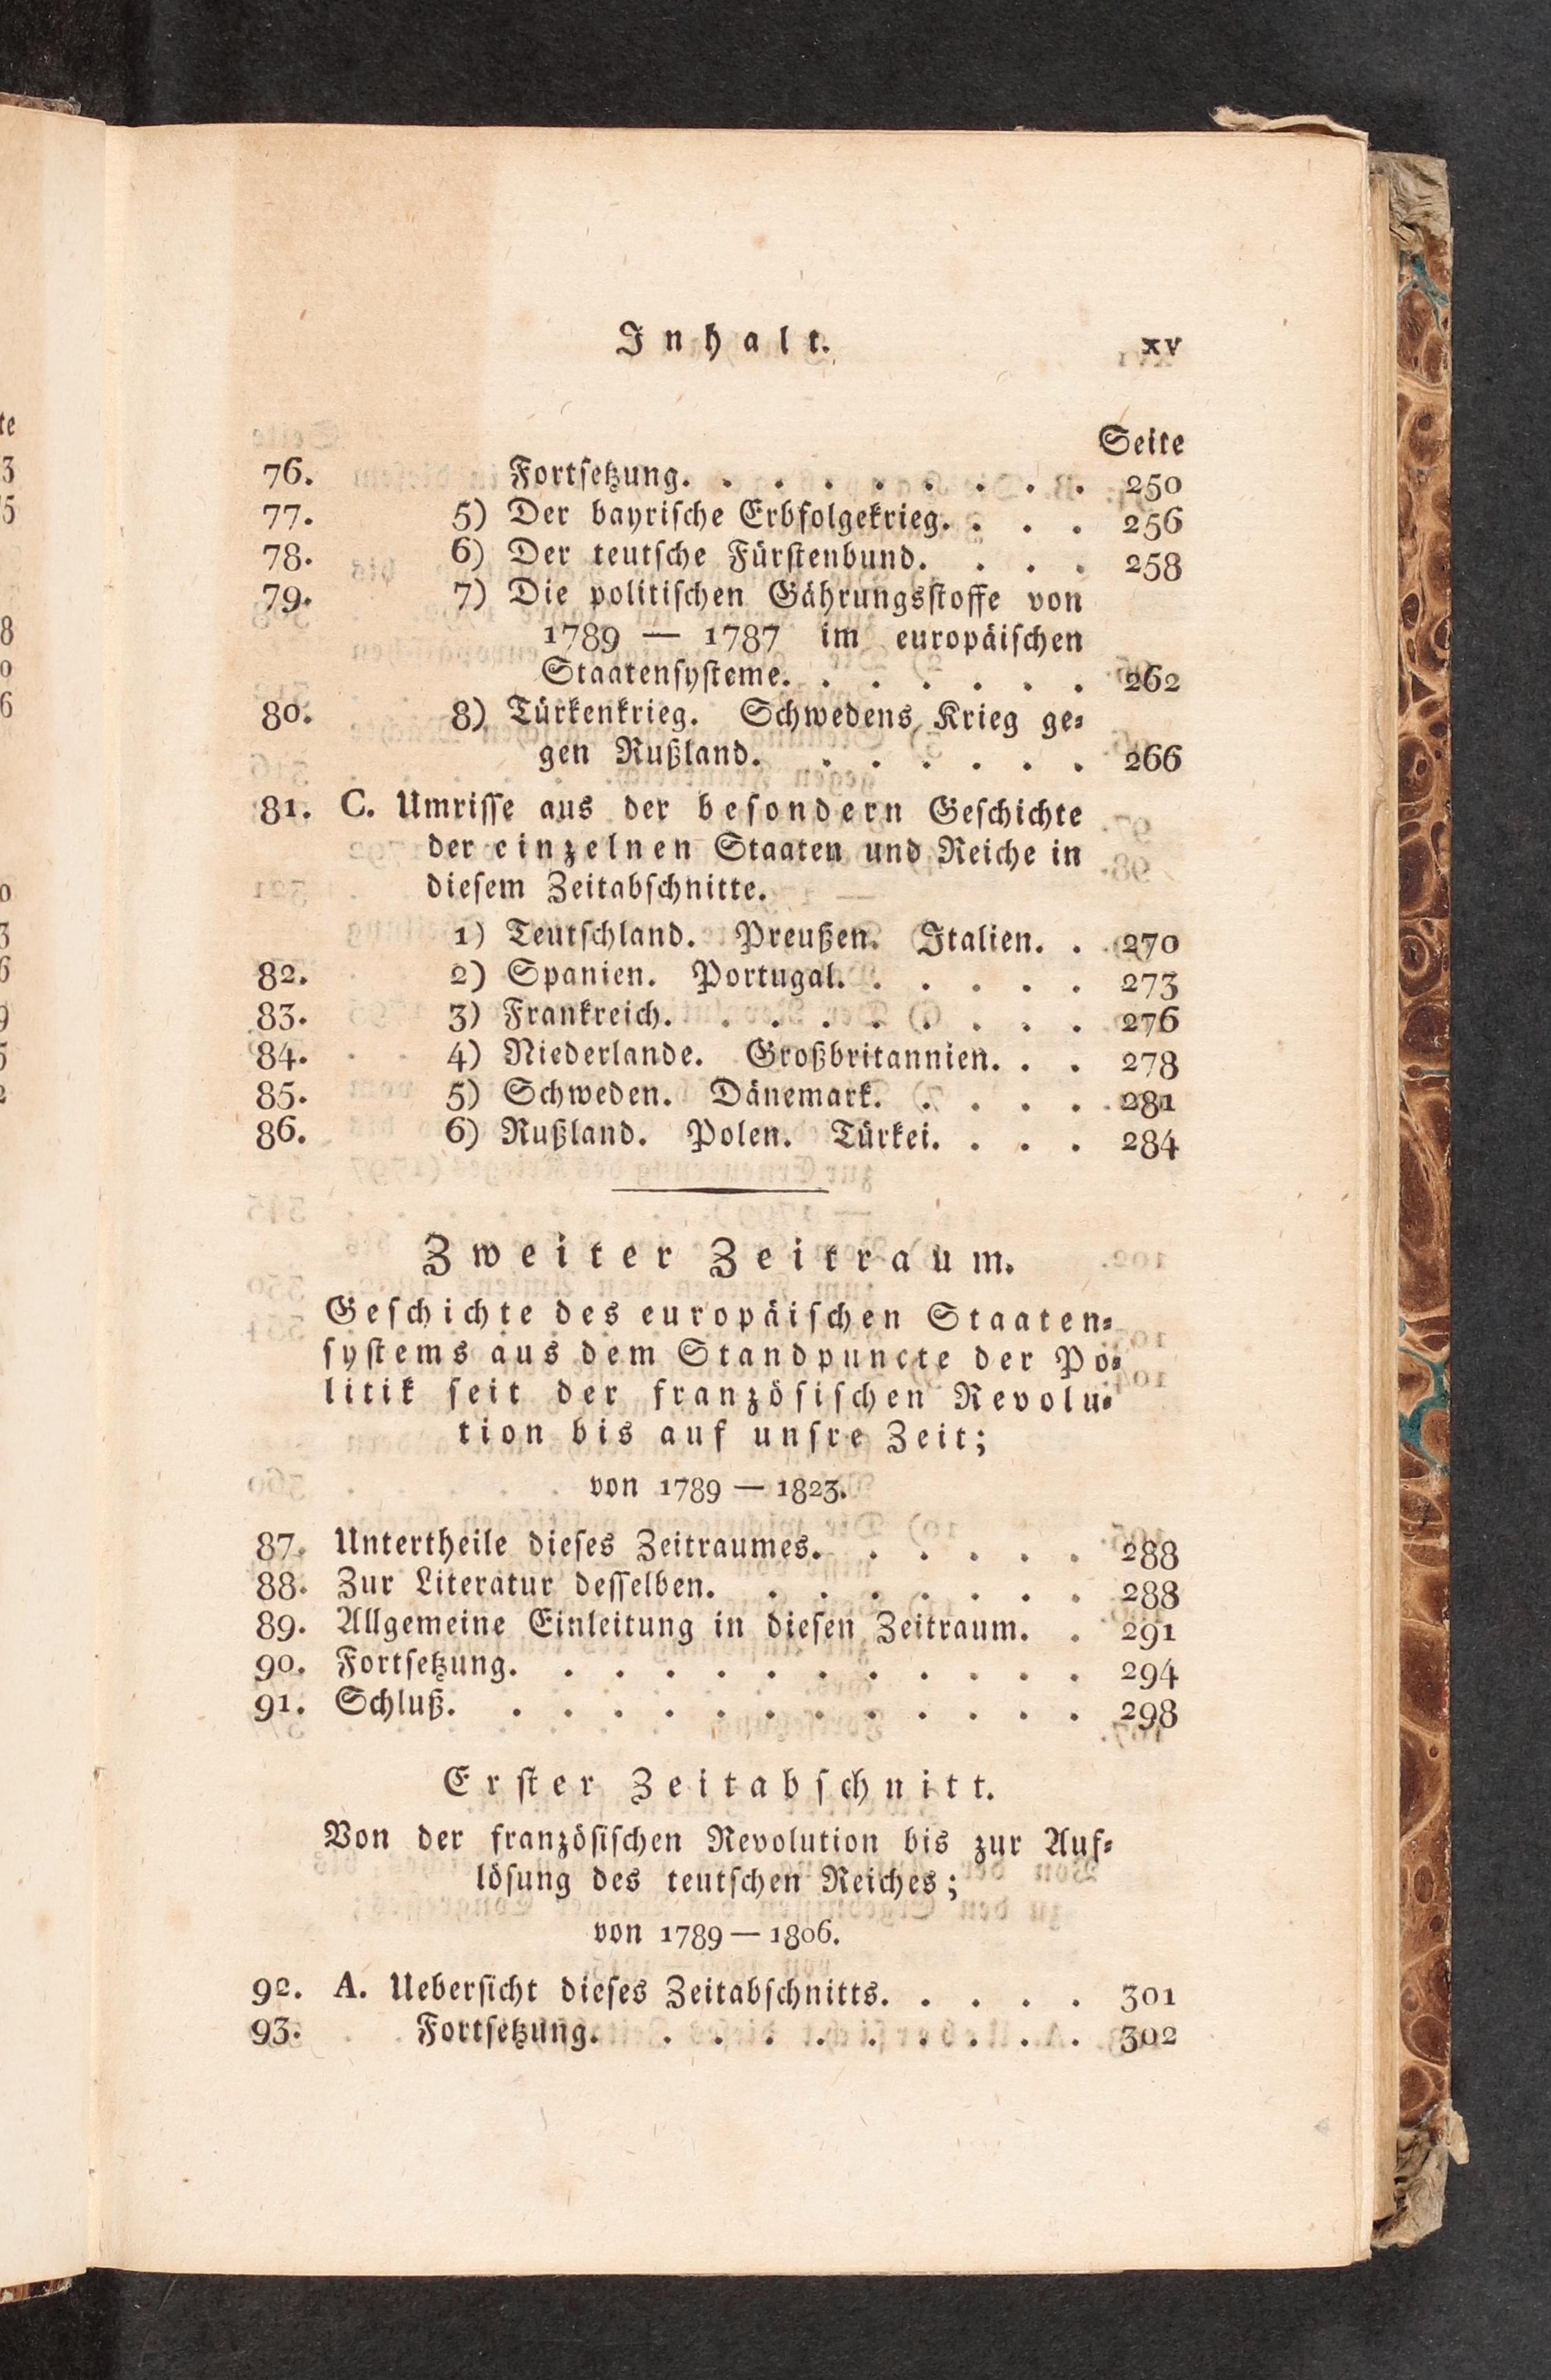 Inhalt. xv
Seite
76. Fortsetzung. . . . . . . . . 250
77. 5) Der bayrische Erbfolgekrieg. . . . 256
78. 6) Der teutsche Fürstenbund. . . . 258
79. 7) Die politischen Gährungsstoffe von
1789 — 1787 im europäischen
Staatensysteme. . . . . . . 262
80. 8) Türkenkrieg. Schwedens Krieg ge-
gen Rußland. . . . . . . 266
81. C. Umrisse aus der besondern Geschichte
der einzelnen Staaten und Reiche in
diesem Zeitabschnitte.
1) Teutschland. Preußen. Italien. . 270
82. 2) Spanien. Portugal. . . . . . 273
83. 3) Frankreich. . . . . . . . . 276
84. 4) Niederlande. Großbritannien. . . 278
85. 5) Schweden. Dänemark. . . . . 281
86. 6) Rußland. Polen. Türkei. . . . 284
Zweiter Zeitraum.
Geschichte des europäischen Staaten-
systems aus dem Standpuncte der Po-
litik seit der französischen Revolu-
tion bis auf unsre Zeit;
von 1789 — 1823.
87. Untertheile dieses Zeitraumes. . . . . . 288
88. Zur Literatur desselben. . . . . . . . 288
89. Allgemeine Einleitung in diesen Zeitraum. . 291
90. Fortsetzung. . . . . . . . . . . . 294
91. Schluß. . . . . . . . . . . . . 298
Erster Zeitabschnitt.
Von der französischen Revolution bis zur Auf-
lösung des teutschen Reiches;
von 1789 — 1806.
92. A. Uebersicht dieses Zeitabschnitts. . . . . 301
93. Fortsetzung. . . . . . . . . . 302